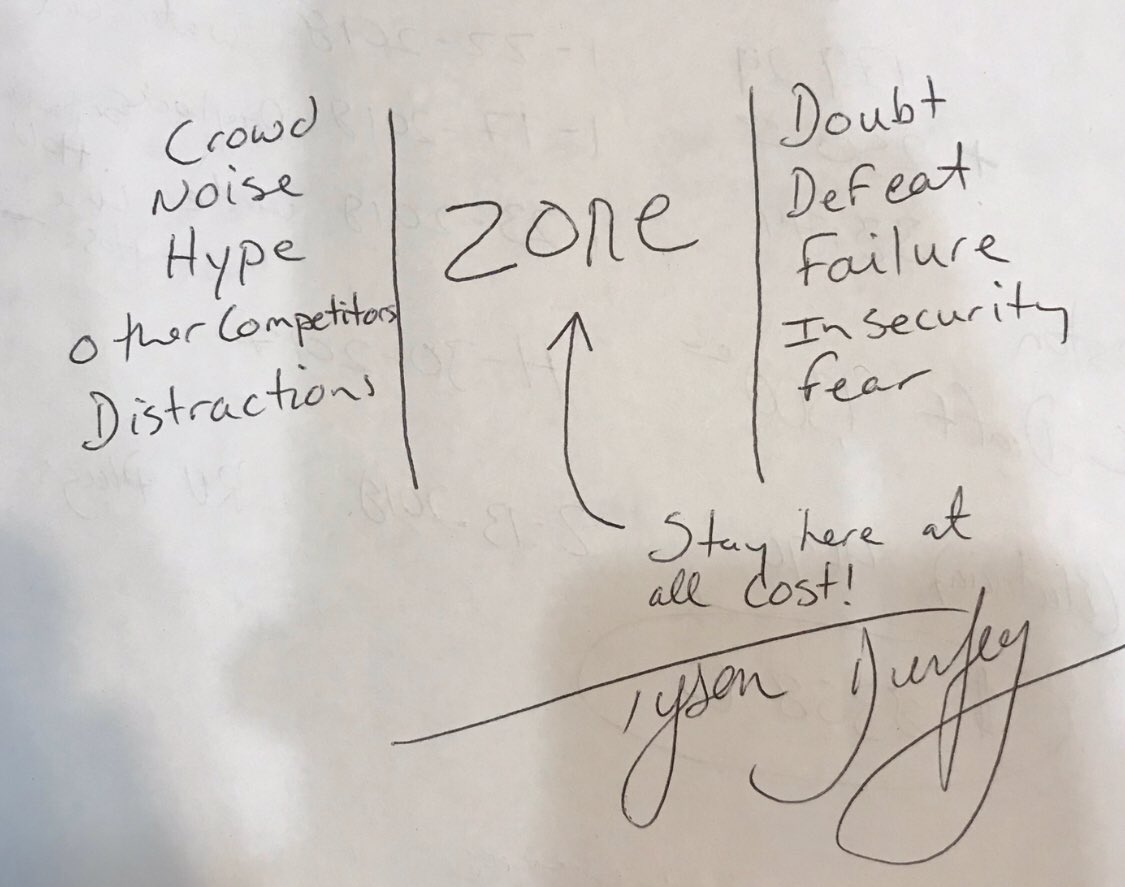 Crowd
Noise
Hype
Other Competitors
Distractions
Zone
Doubt
Defeat
Failure
Insecurity
Fear
Stay here at
all cost!
Tyson Durfey